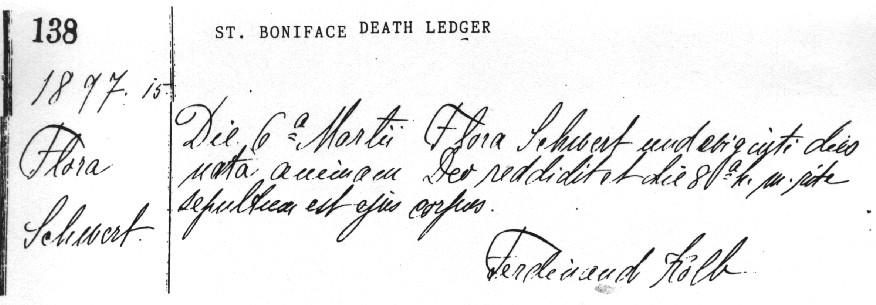 138
ST. BONIFACE DEATH LEDGER
1897. 15
Flora
Schwert.
Die 6ª Martii Flora Schwert undeviginti dies
nata animam Deo reddidit et die 8ª h. m. rite
sepultum est ejus corpus.
Ferdinand Kolb